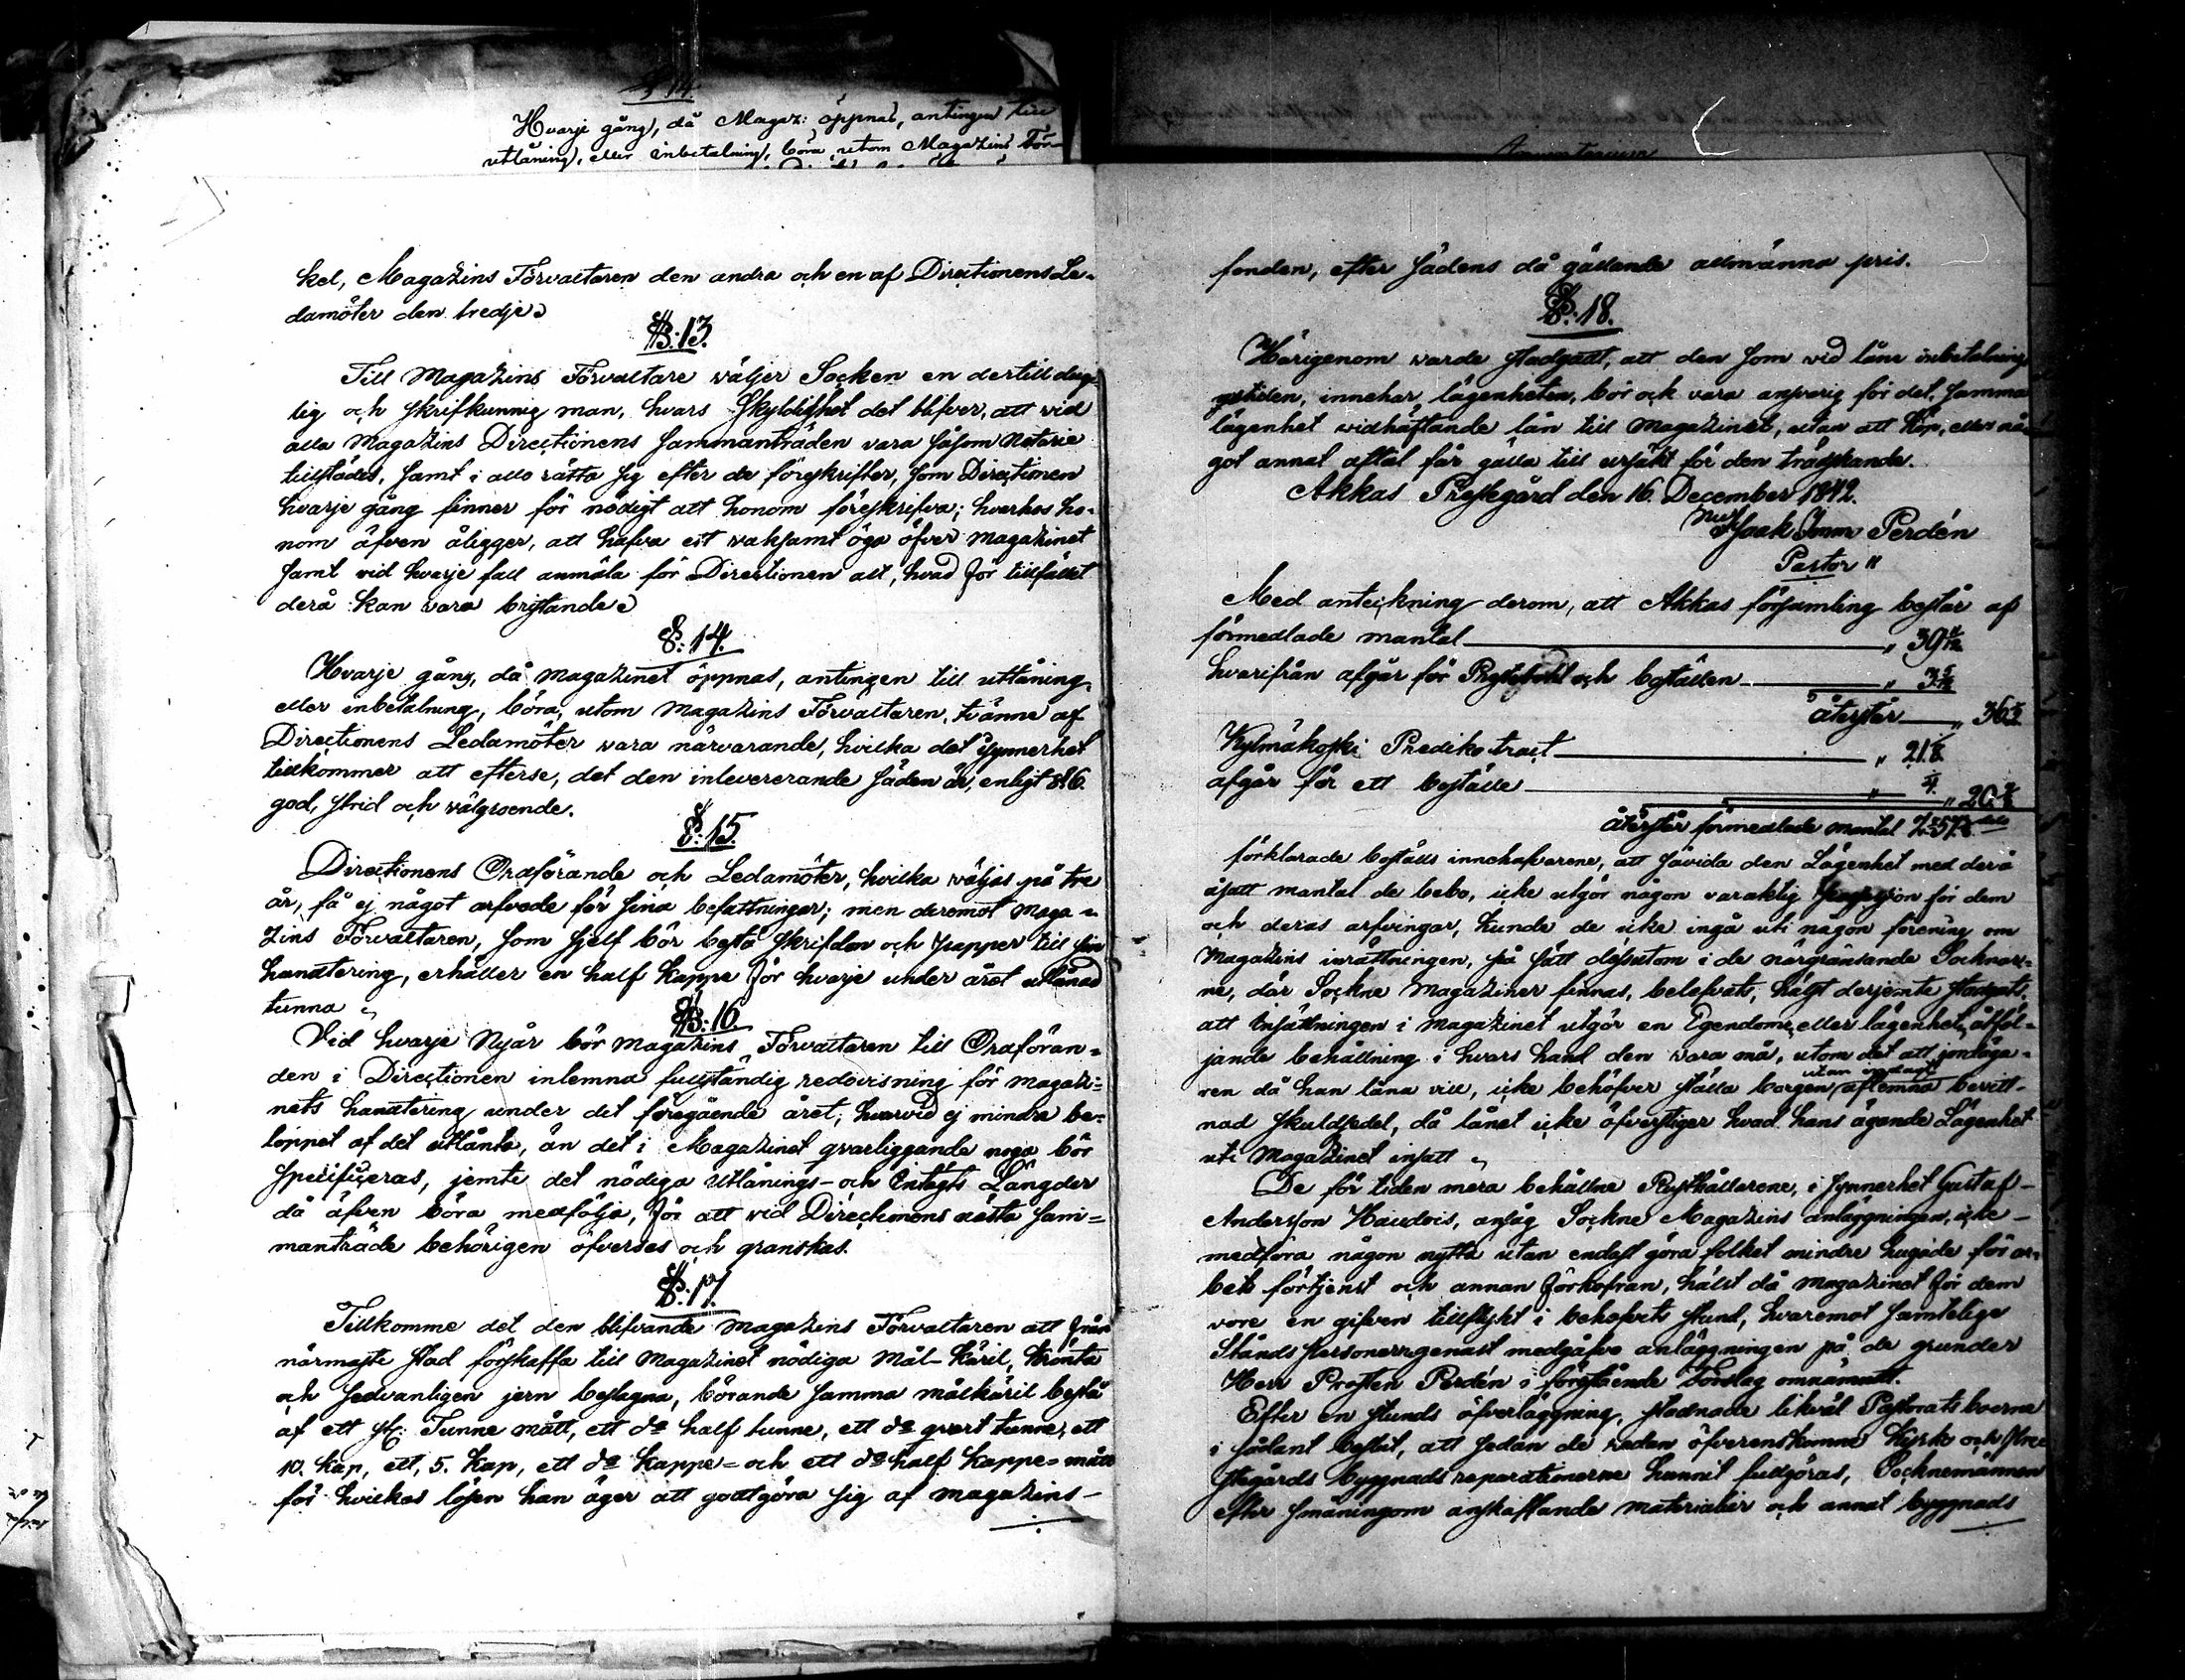 § 14.
Hvarje gång, då Magaz: öppnas, antingen till
utlåning, eller inbetalning, böra, utom Magazins För-
kel, Magazins Förvaltaren den andra och en af Directionens Le-
damöter den tredje.
§: 13.
Till Magazins Förvaltare väljer Socken en dertill dug-
lig och skrifkunnig man, hvars skyldighet det blifver, att vid
alla Magazins Directionens sammanträden vara såsom Notarie
tillstädes, samt i allo rätta sig efter de föreskrifter, som Directionen
hvarje gång finner för nödigt att honom föreskrifva; hvarhos ho-
nom äfven åligger, att hafva ett vaksamt öga öfver Magazinet
samt vid hvarje fall anmäla för Directionen allt, hvad för tillfället
derå kan vara bristande.
§: 14.
Hvarje gång, då Magazinet öppnas, antingen till utlåning,
eller inbetalning, böra, utom Magazins Förvaltaren, tvänne af
Directionens Ledamöter vara närvarande, hvilka det i synnerhet
tillkommer att efterse, det den inlevererande säden är, enligt §: 6.
god, strid och välgroende.
§: 15.
Directionens Ordförande och Ledamöter, hvilka väljas på tre
år, få ej något arfvode för sina befattningar; men deremot Maga-
zins Förvaltaren, som sjelf bör bestå skrifdon och papper till sin
handtering, erhåller en half kappe för hvarje under året utlånad
tunna.
§: 16.
Vid hvarje Nyår bör Magazins Förvaltaren till Ordföran-
den i Directionen inlemna fullständig redovisning för Magazi-
nets handtering under det föregående året; hvarvid ej mindre be-
loppet af det utlånta, än det i Magazinet qvarliggande noga bör
specificeras, jemte det nödiga Utlånings- och Intägts Längder
då äfven böra medfölja, för att vid Directionens nästa sam-
manträde behörigen öfverses och granskas.
§: 17.
Tillkomme det den blifvande Magazins Förvaltaren att från
närmaste stad förskaffa till Magazinet nödiga Mål-käril, krönta
och sedvanligen jern beslagna, börande samma målkäril bestå
af ett st: Tunne mått, ett do half tunne, ett do qvart tunne, ett
10. kap, ett, 5. kap, ett do kappe- och ett do half kappe- mått
för hvilkas lösen han äger att godtgöra sig af Magazins-
fonden, efter sädens då gällande allmänna pris.
§: 18.
Härigenom varde stadgadt, att den som vid låns inbetalnings
tiden, innehar lägenheten, bör och vara ansvarig för det, samma
lägenhet vidhäftande lån till Magazinet, utan att köp, eller nå-
got annat aftal får gälla till ursäkt för den trädskande.
Akkas Prestegård den 16. December 1842.
Isaak Imm. Perdén
Pastor
Med anteckning derom, att Akkas församling består af
förmedlade mantal
hvarifrån afgår för och boställen
återstår
Kylmäkoski Predike tract
afgår för ett boställe
återstår förmedlade mantal
förklarade boställs innehafvarene, att såvida den Lägenhet med derå
åsatt mantal de bebo, icke utgör någon varaktig för dem
och deras arfvingar, kunde de icke ingå uti någon förening om
Magazins inrättningen, på sätt dessutom i de närgränsande Socknar-
ne, där Sockne Magaziner finnas, belefvats, hälst derjemte stadgats,
att insättningen i Magazinet utgör en Egendoms, eller lägenhet, åtföl-
jande behållning i hvars hand den vara må, utom det att jordäga-
ren då han låna vill, icke behöfver ställa borgen, aflemna bevitt-
nad skuldsedel, då lånet icke öfverstiger hvad hans ägande Lägenhet
uti Magazinet insatt.
De för tiden mera behållne Rusthållarene, i synnerhet Gustaf
Andersson Haudois, ansåg Sockne Magazins anläggningen, icke
medföra någon nytta utan endast göra folket mindre hugade för ar-
bets förtjenst och annan förkofran, hälst då Magazinet för dem
vore en gifven tillflykt i behofvets stund, hvaremot samtelige
Stånds Personer genast medgåfvo anläggningen på de grunder
Herr Prosten Perdén i förestående Förslag omnämnt.
Efter en stunds öfverläggning, stadnade likväl Pastorats boerna
i sådant beslut, att sedan de redan öfverenskomna Kyrko och Pre-
stegårds byggnads reparationerne hunnit fullgöras, Socknemännen
efter småningom anskaffande materialier och annat byggnads